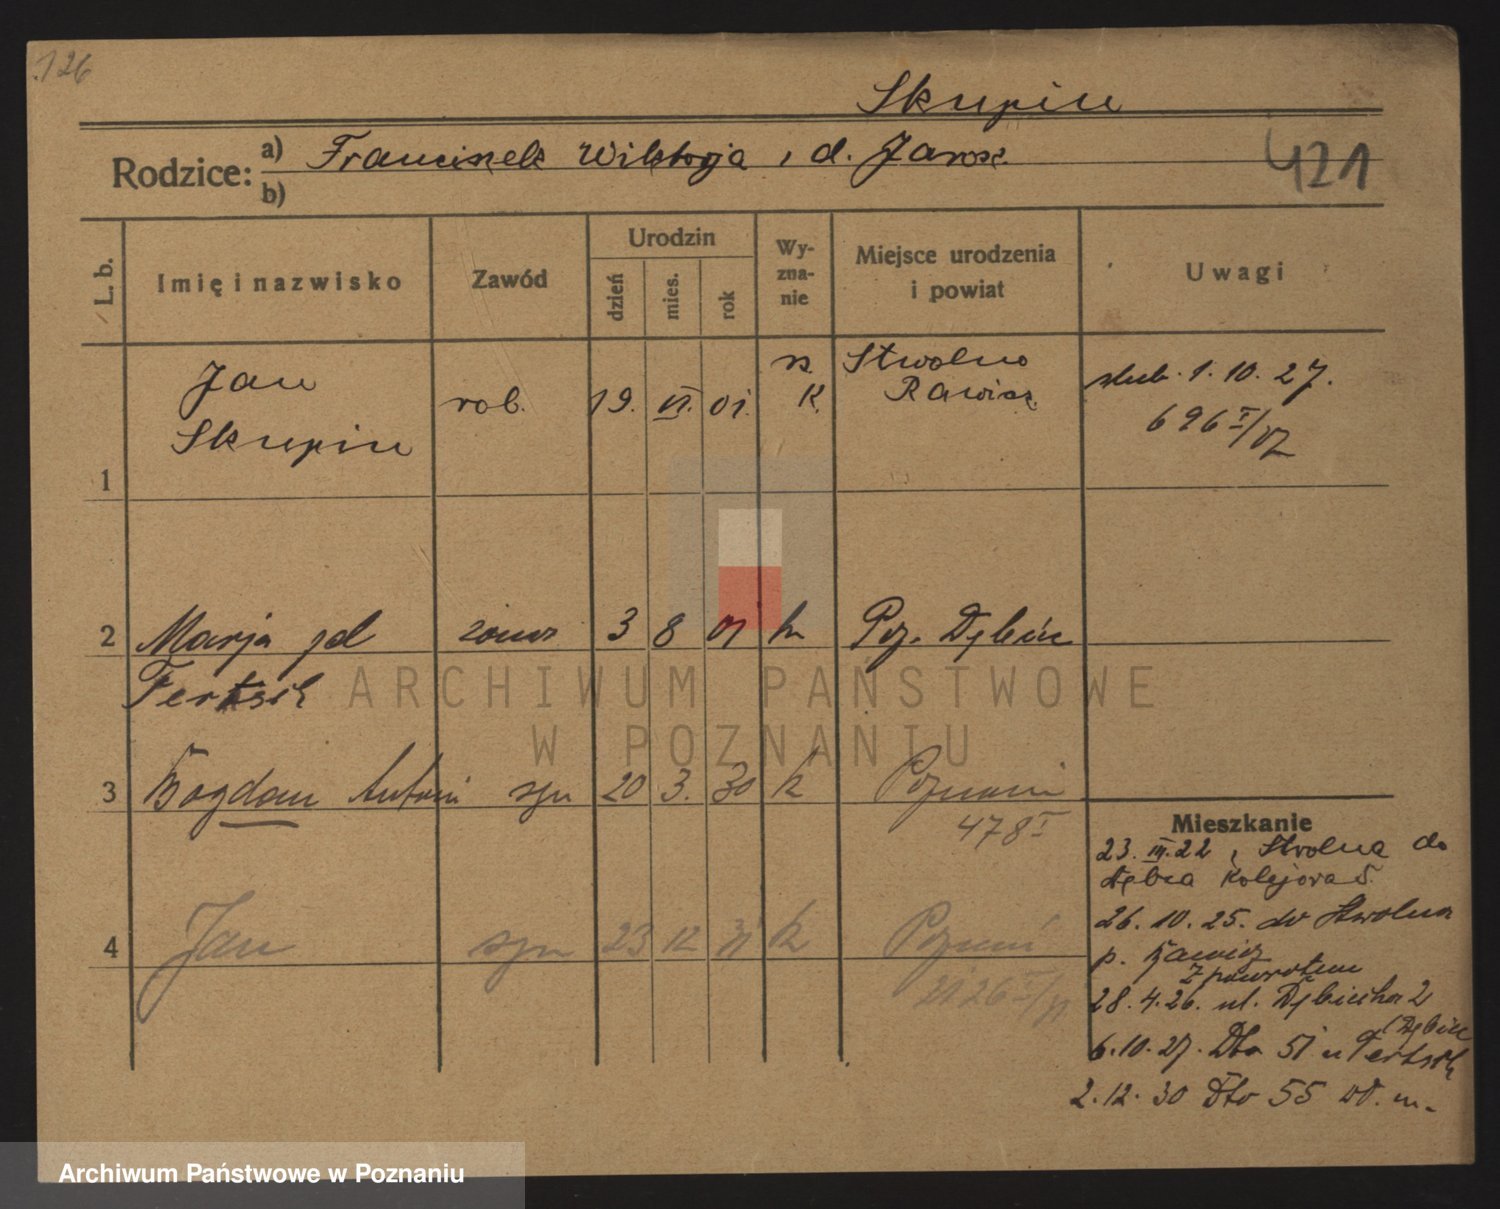 126
Skupin
Rodzice: a) Franciszek Wiktorja, d. Jarosz
b)
421
L. b.
Imię i nazwisko
Zawód
Urodzin
dzień
mies.
rok
Wy-
zna-
nie
Miejsce urodzenia
i powiat
Uwagi
1
Jan
Skupin
rob.
19. VI. 01.
rz.
K.
Stwolno
Rawicz
ślub. 1. 10. 27.
696 I/27
2 Marja żona 3 8 01 k Poz. Dębiec
Fertsch
3 Bogdan Antoni syn 20 3. 30 k Poznań
478 I
4 Jan syn 23 12 31 k Poznań
2126 I/31
Mieszkanie
23. III. 22 z Stwolna do
Dębca Kolejowa 5.
26. 10. 25. do Stwolna
p. Rawicz
z powrotem
28. 4. 26. ul. Dębiecka 2
(Dębiec
6. 10. 27. Dto 51 u Fertsch
2. 12. 30 Dto 55 wł. m.
ARCHIWUM PAŃSTWOWE
W POZNANIU
Archiwum Państwowe w Poznaniu